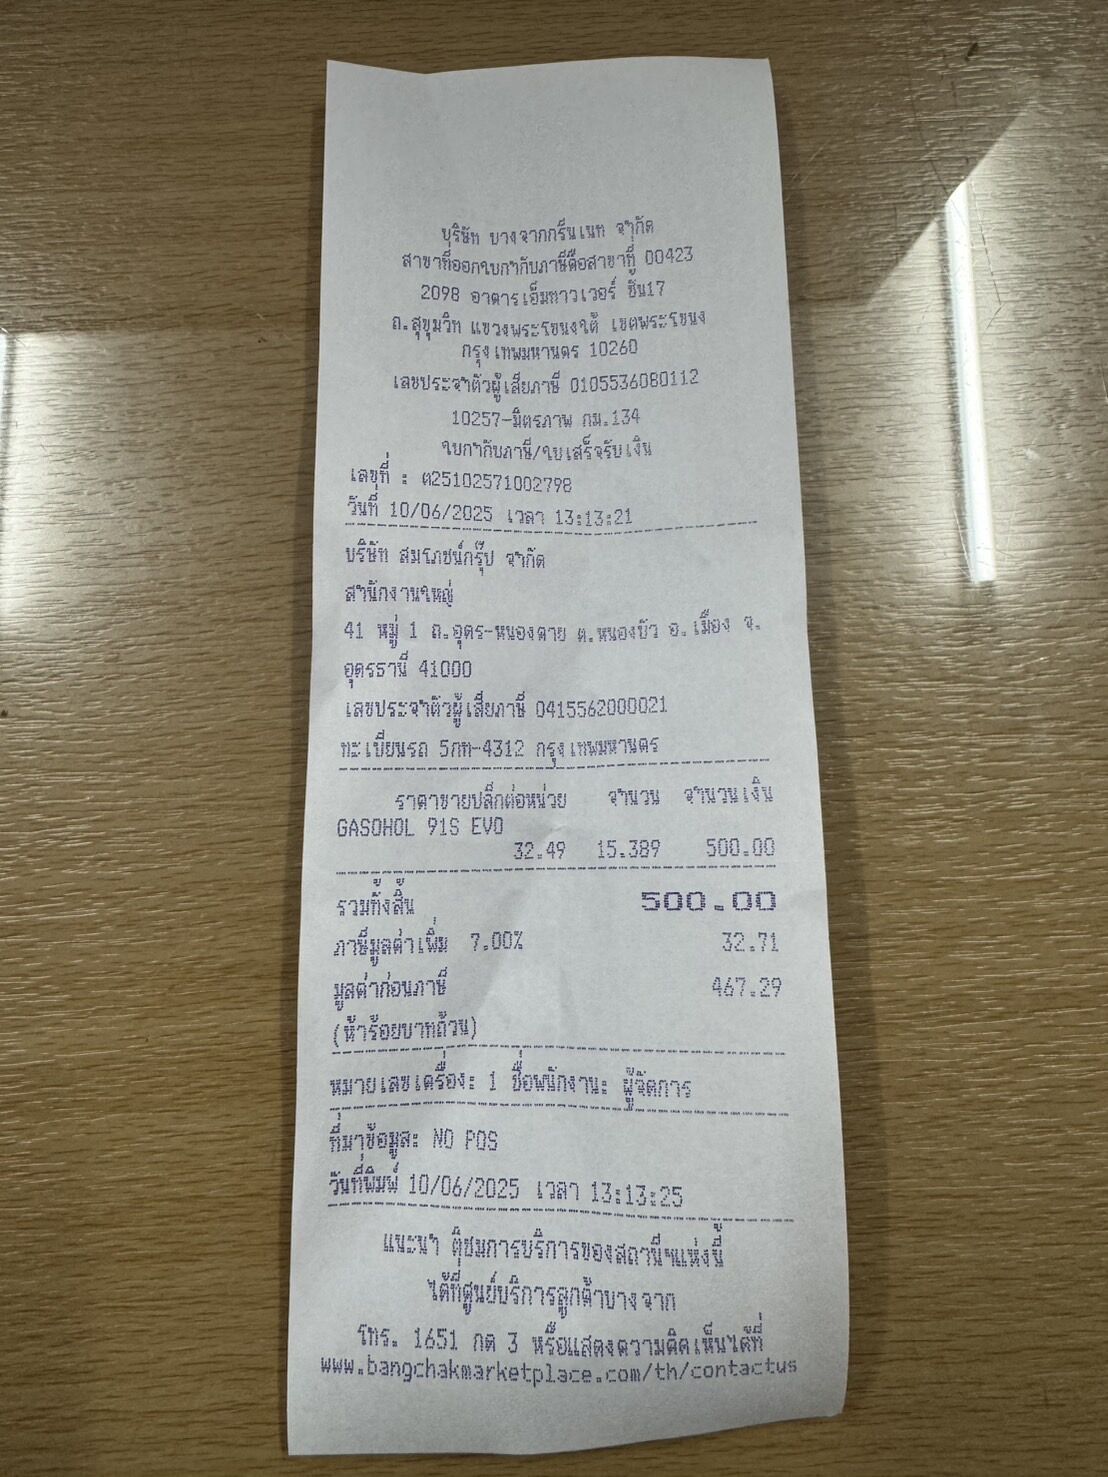 บริษัท บางจากกรีนเนท จำกัด
สาขาที่ออกใบกำกับภาษีคือสาขาที่ 00423
2098 อาคารเอ็มทาวเวอร์ ชั้น17
ถ.สุขุมวิท แขวงพระโขนงใต้ เขตพระโขนง
กรุงเทพมหานคร 10260
เลขประจำตัวผู้เสียภาษี 0105536080112
10257-มิตรภาพ กม.134
ใบกำกับภาษี/ใบเสร็จรับเงิน
เลขที่ : ต25102571002798
วันที่ 10/06/2025 เวลา 13:13:21
บริษัท สมโภชน์กรุ๊ป จำกัด
สำนักงานใหญ่
41 หมู่ 1 ถ.อุดร-หนองตาย ต.หนองบัว อ.เมือง จ.
อุดรธานี 41000
เลขประจำตัวผู้เสียภาษี 0415562000021
ทะเบียนรถ 5กท-4312 กรุงเทพมหานคร
ราคาขายปลีกต่อหน่วย จำนวน จำนวนเงิน
GASOHOL 91S EVO
32.49 15.389 500.00
รวมทั้งสิ้น 500.00
ภาษีมูลค่าเพิ่ม 7.00% 32.71
มูลค่าก่อนภาษี 467.29
(ห้าร้อยบาทถ้วน)
หมายเลขเครื่อง: 1 ชื่อพนักงาน: ผู้จัดการ
ที่มาข้อมูล: NO POS
วันที่พิมพ์ 10/06/2025 เวลา 13:13:25
แนะนำ ติชมการบริการของสถานีฯแห่งนี้
ได้ที่ศูนย์บริการลูกค้าบางจาก
โทร. 1651 กด 3 หรือแสดงความคิดเห็นได้ที่
www.bangchakmarketplace.com/th/contactus